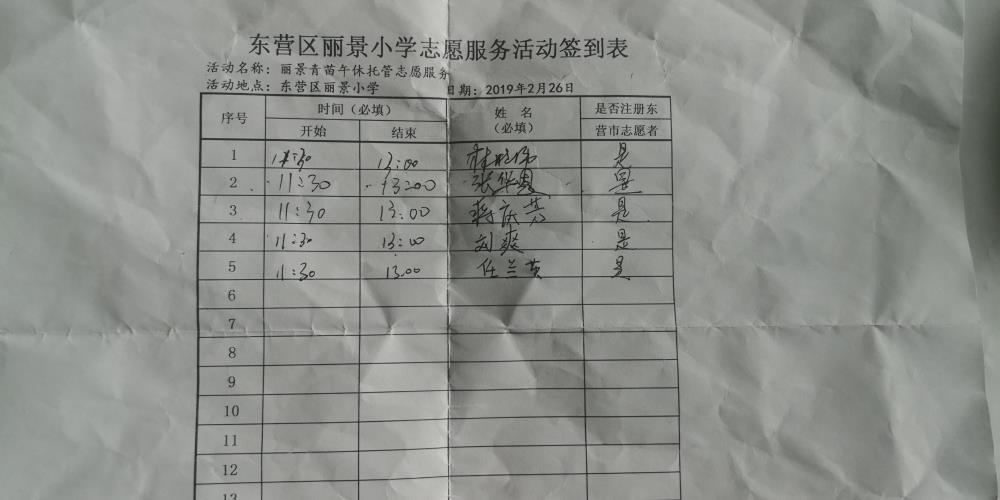 东营区丽景小学志愿服务活动签到表
活动名称：丽景青苗午休托管志愿服务
活动地点：东营区丽景小学 日期：2019年2月26日
序号 时间（必填） 姓 名 是否注册东
开始 结束 （必填） 营市志愿者
1 11:30 13:00 是
2 11:30 13:00 张华恩 是
3 11:30 13:00 蒋庆芳 是
4 11:30 13:00 刘爽 是
5 11:30 13:00 任兰英 是
6
7
8
9
10
11
12
13